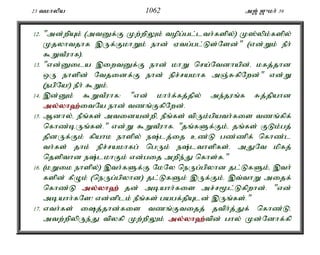 23 வமாலிய 1062 அஜ்ஜுமர் 39
12. "அன்றியும் (அவனுக்கு முற்றிலும் வழிப்பட்டவர்களில்) முஸ்லிம்களில்
முதலாவதாக இருக்குமாறும் நான் ஏவப்பட்டுள்ளேன்" (என்றும் நீர்
கூறுவீராக).
13. "என்னுடைய இறைவனுக்கு நான் மாறு செய்வேனாயின். மகத்தான
ஒரு நாளின் வேதனைக்கு நான் நிச்சயமாக அஞ்சுகிறேன்" என்று
(நபியே) நீர் கூறும்.
14. இன்னும் கூறுவீராக: "என் மார்க்கத்தில் அந்தரங்க சுத்தியான
அல்லாஹ்வையே நான் வணங்குகிறேன்.
15. "ஆனால், நீங்கள் அவனையன்றி, நீங்கள் விரும்பியவர்களை வணங்கிக்
கொண்டிருங்கள்." என்று கூறுவீராக. "தங்களுக்கும், தங்கள் குடும்பத்
தினருக்கும் கியாம நாளில் நஷ்டத்தை உண்டு பண்ணிக் கொண்ட
வர்கள் தாம் நிச்சயமாகப் பெரும் நஷ்டவாளிகள். அதுவே மிகத்
தெளிவான நஷ்டமாகும் என்பதை அறிந்து கொள்க."
16. (மறுமை நாளில்) இவர்களுக்கு மேலே நெருப்பிலான தட்டுகளும், இவர்
களின் கீழும் (நெருப்பிலான) தட்டுகளும் இருக்கும். இவ்வாறு அதைக்
கொண்டு அல்லாஹ் தன் அடியார்களை அச்சமூட்டுகிறான். "என்
அடியார்களே! என்னிடம் நீங்கள் பயபக்தியுடன் இருங்கள்."
17. எவர்கள் ஷைத்தான்களை வணங்குவதைத் தவிர்த்துக் கொண்டு,
அவற்றிலிருந்து விலகி முற்றிலும் அல்லாஹ்வின் பால் முன்னோக்கி